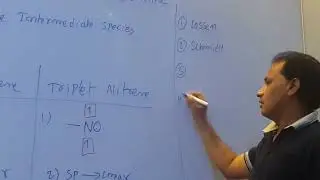 e Intermediate Species
① Lossen
② Schmidt
③
Triplet Nitrene
1)
1
— NO
1
2) SP → Linear